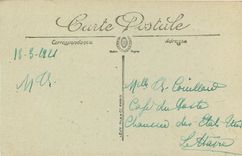 Carte Postale
Correspondance
Adresse
18-3-1921
Mlle Couillard
Café du Poste
Chaussée des Etats Unis
Le Havre